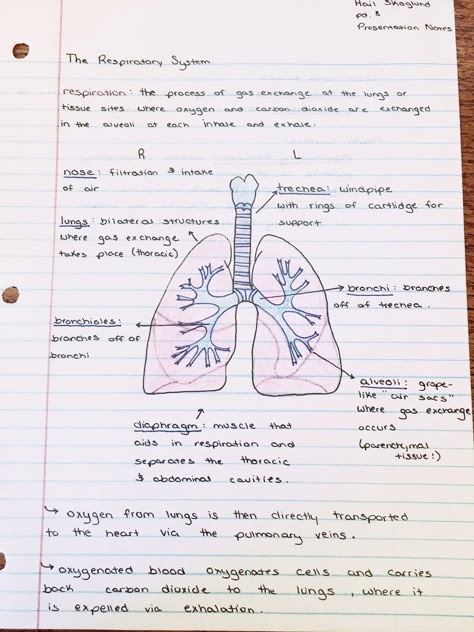 Hail Skoglund
pd. 8
Presentation Notes
The Respiratory System
respiration: the process of gas exchange at the lungs or
tissue sites where oxygen and carbon dioxide are exchanged
in the alveoli at each inhale and exhale.
R
L
nose: filtration & intake
of air
trechea: windpipe
with rings of cartlidge for
support
lungs: bilateral structures
where gas exchange
takes place (thoracic)
bronchi: branches
off of trechea.
bronchioles:
branches off of
bronchi
alveoli: grape-
like "air sacs"
where gas exchange
occurs
(parenchymal
tissue!)
diaphragm: muscle that
aids in respiration and
separates the thoracic
& abdominal cavities.
↳ oxygen from lungs is then directly transported
to the heart via the pulmonary veins.
↳ oxygenated blood oxygenates cells and carries
back carbon dioxide to the lungs, where it
is expelled via exhalation.